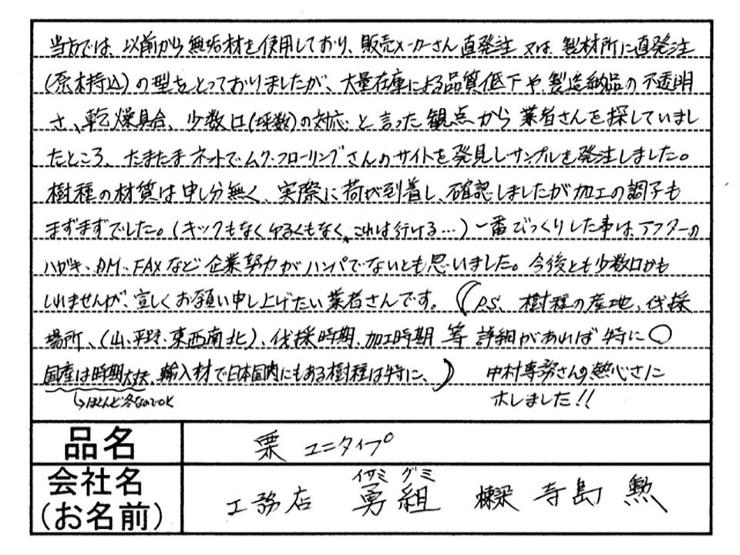 当方では、以前から無垢材を使用しており、販売メーカーさん直発注 又は、製材所に直発注
(原木持込)の型をとっておりましたが、大量在庫による品質低下や、製造納品の不透明
さ、乾燥具合、少数口(坪数)の対応と言った観点から業者さんを探していまし
たところ、たまたまネットで、ムク・フローリングさんのサイトを発見しサンプルを発注しました。
樹種の材質は申し分無く、実際に荷が到着し、確認しましたが加工の調子も
まずまずでした。(キツくもなくゆるくもなく、これは行ける…)一番びっくりした事は、アフターの
ハガキ、DM、FAXなど企業努力がハンパでないとも思いました。今後とも少数口かも
しれませんが、宜しくお願い申し上げたい業者さんです。(P.S. 樹種の産地、伐採
場所、(山、平地、東西南北)、伐採時期、加工時期 等 詳細があれば特に○
国産は時期大抵、輸入材で日本国内にもある樹種は特に、) 中村専務さんの熱心さに
↳ほとんど冬なのでOK ホレました!!
品名 栗 ユニタイプ
会社名 イサミ グミ
(お名前) 工務店 勇組 棟梁 寺島 勲